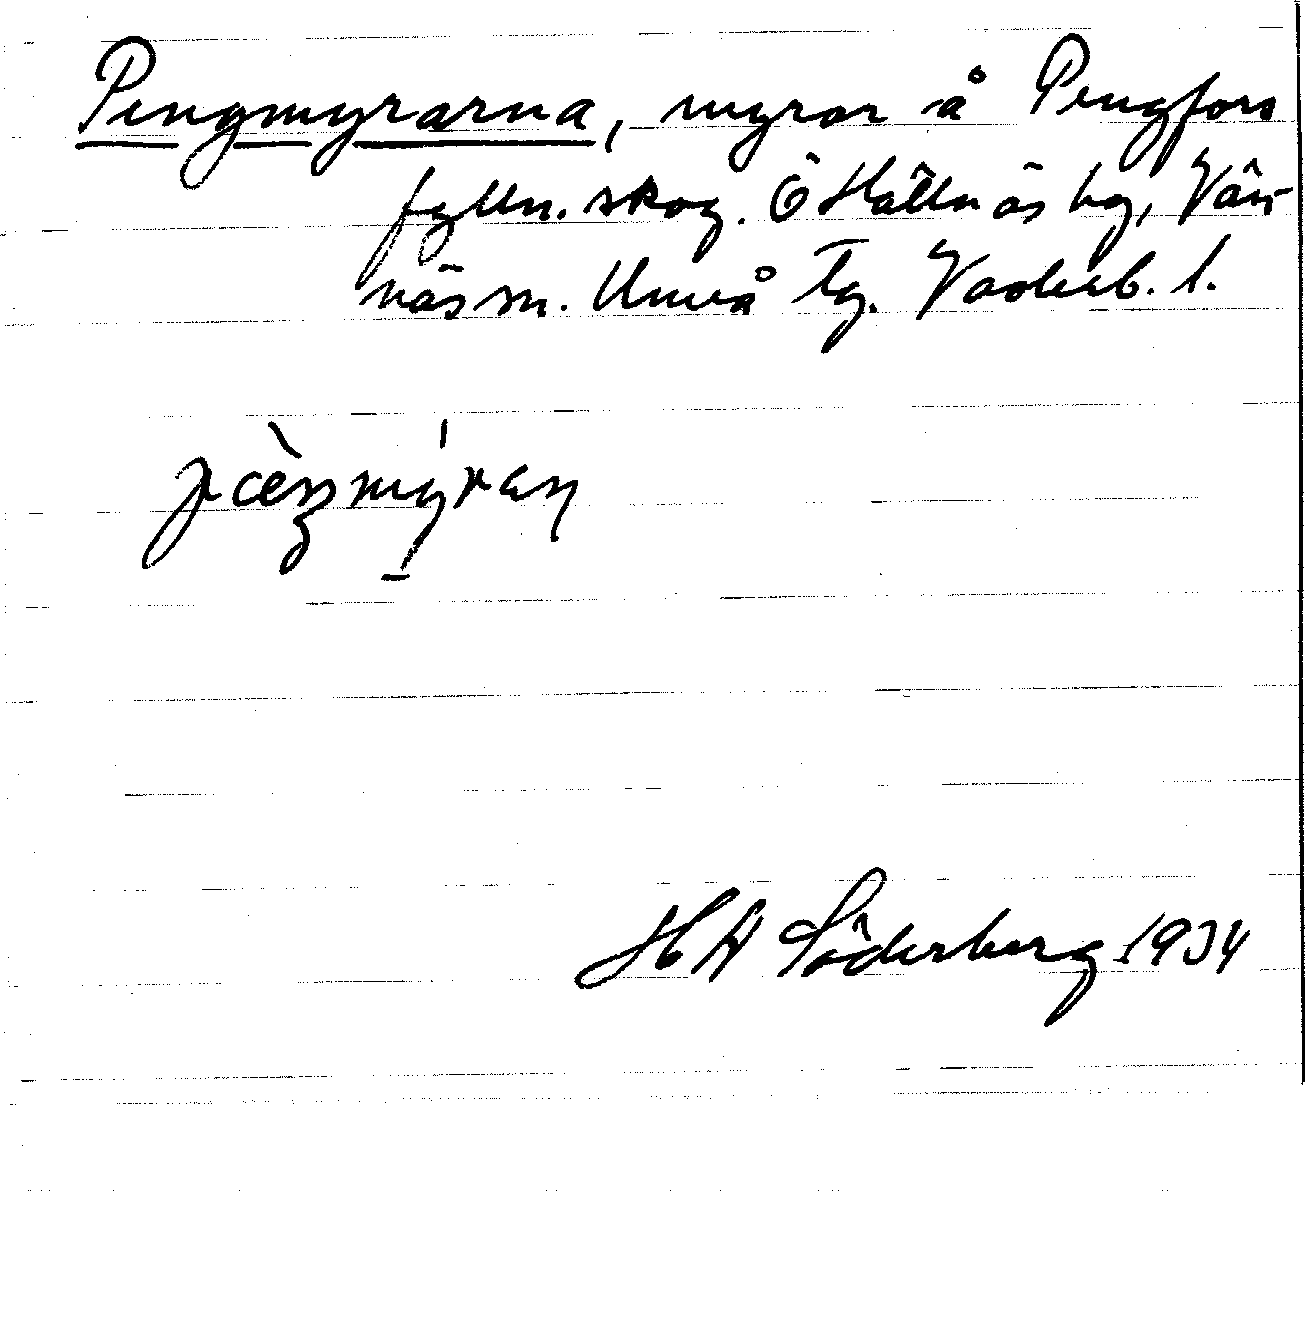 Pengmyrarna, myrar å Pengfors
fylln. skog. Ö Hällnäs by, Vän-
näs sn. Umeå tg. Västerb. l.
H A Söderberg 1934